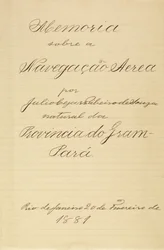 Memoria
sobre a
Navegação Aerea
por
Julio Cezar Ribeiro de Souza
natural da
Provincia do Gram-
Pará
Rio de Janeiro 20 de Fevereiro de
1881